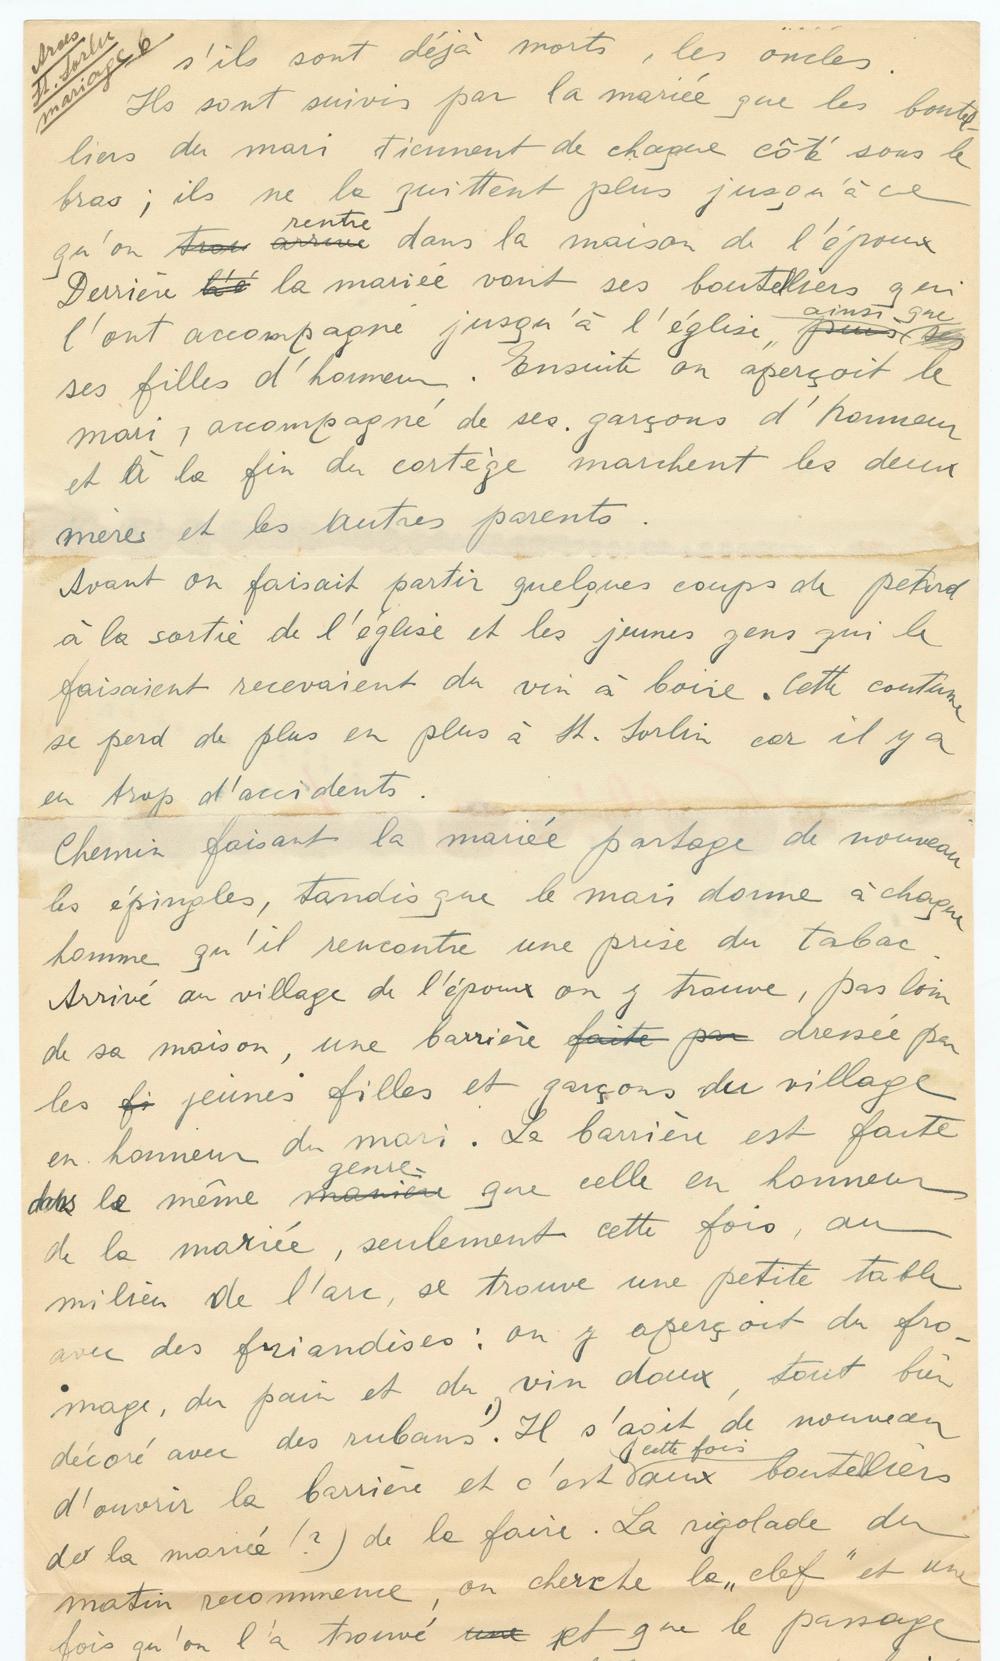 Arves
St. Sorlin
mariage 6
s'ils sont déjà morts, les oncles.
Ils sont suivis par la mariée que les boutel-
liers du mari tiennent de chaque côté sous le
bras ; ils ne la quittent plus jusqu'à ce
rentre
qu'on arrive dans la maison de l'époux
Derrière la mariée vont ses boutelliers qui
ainsi que
l'ont accompagné jusqu'à l'église, puis ses
ses filles d'honneur. Ensuite on aperçoit le
mari, accompagné de ses garçons d'honneur
et à la fin du cortège marchent les deux
mères et les autres parents.
Avant on faisait partir quelques coups de petard
à la sortie de l'église et les jeunes gens qui le
faisaient recevaient du vin à boire. Cette coutume
se perd de plus en plus à St. Sorlin car il y a
eu trop d'accidents.
Chemin faisant la mariée partage de nouveau
les épingles, tandis que le mari donne à chaque
homme qu'il rencontre une prise du tabac.
Arrivé au village de l'époux on y trouve, pas loin
de sa maison, une barrière faite par dressée par
les fi jeunes filles et garçons du village
en honneur du mari. La barrière est faite
genre
dans le même manière que celle en honneur
de la mariée, seulement cette fois, au
milieu de l'arc, se trouve une petite table
avec des friandises : on y aperçoit du fro-
mage, du pain et du vin doux, tout bien
décoré avec des rubans 1). Il s'agit de nouveau
cette fois
d'ouvrir la barrière et c'est aux boutelliers
de la mariée (?) de le faire. La rigolade du
matin recommence, on cherche la „clef" et une
fois qu'on l'a trouvé une et que le passage